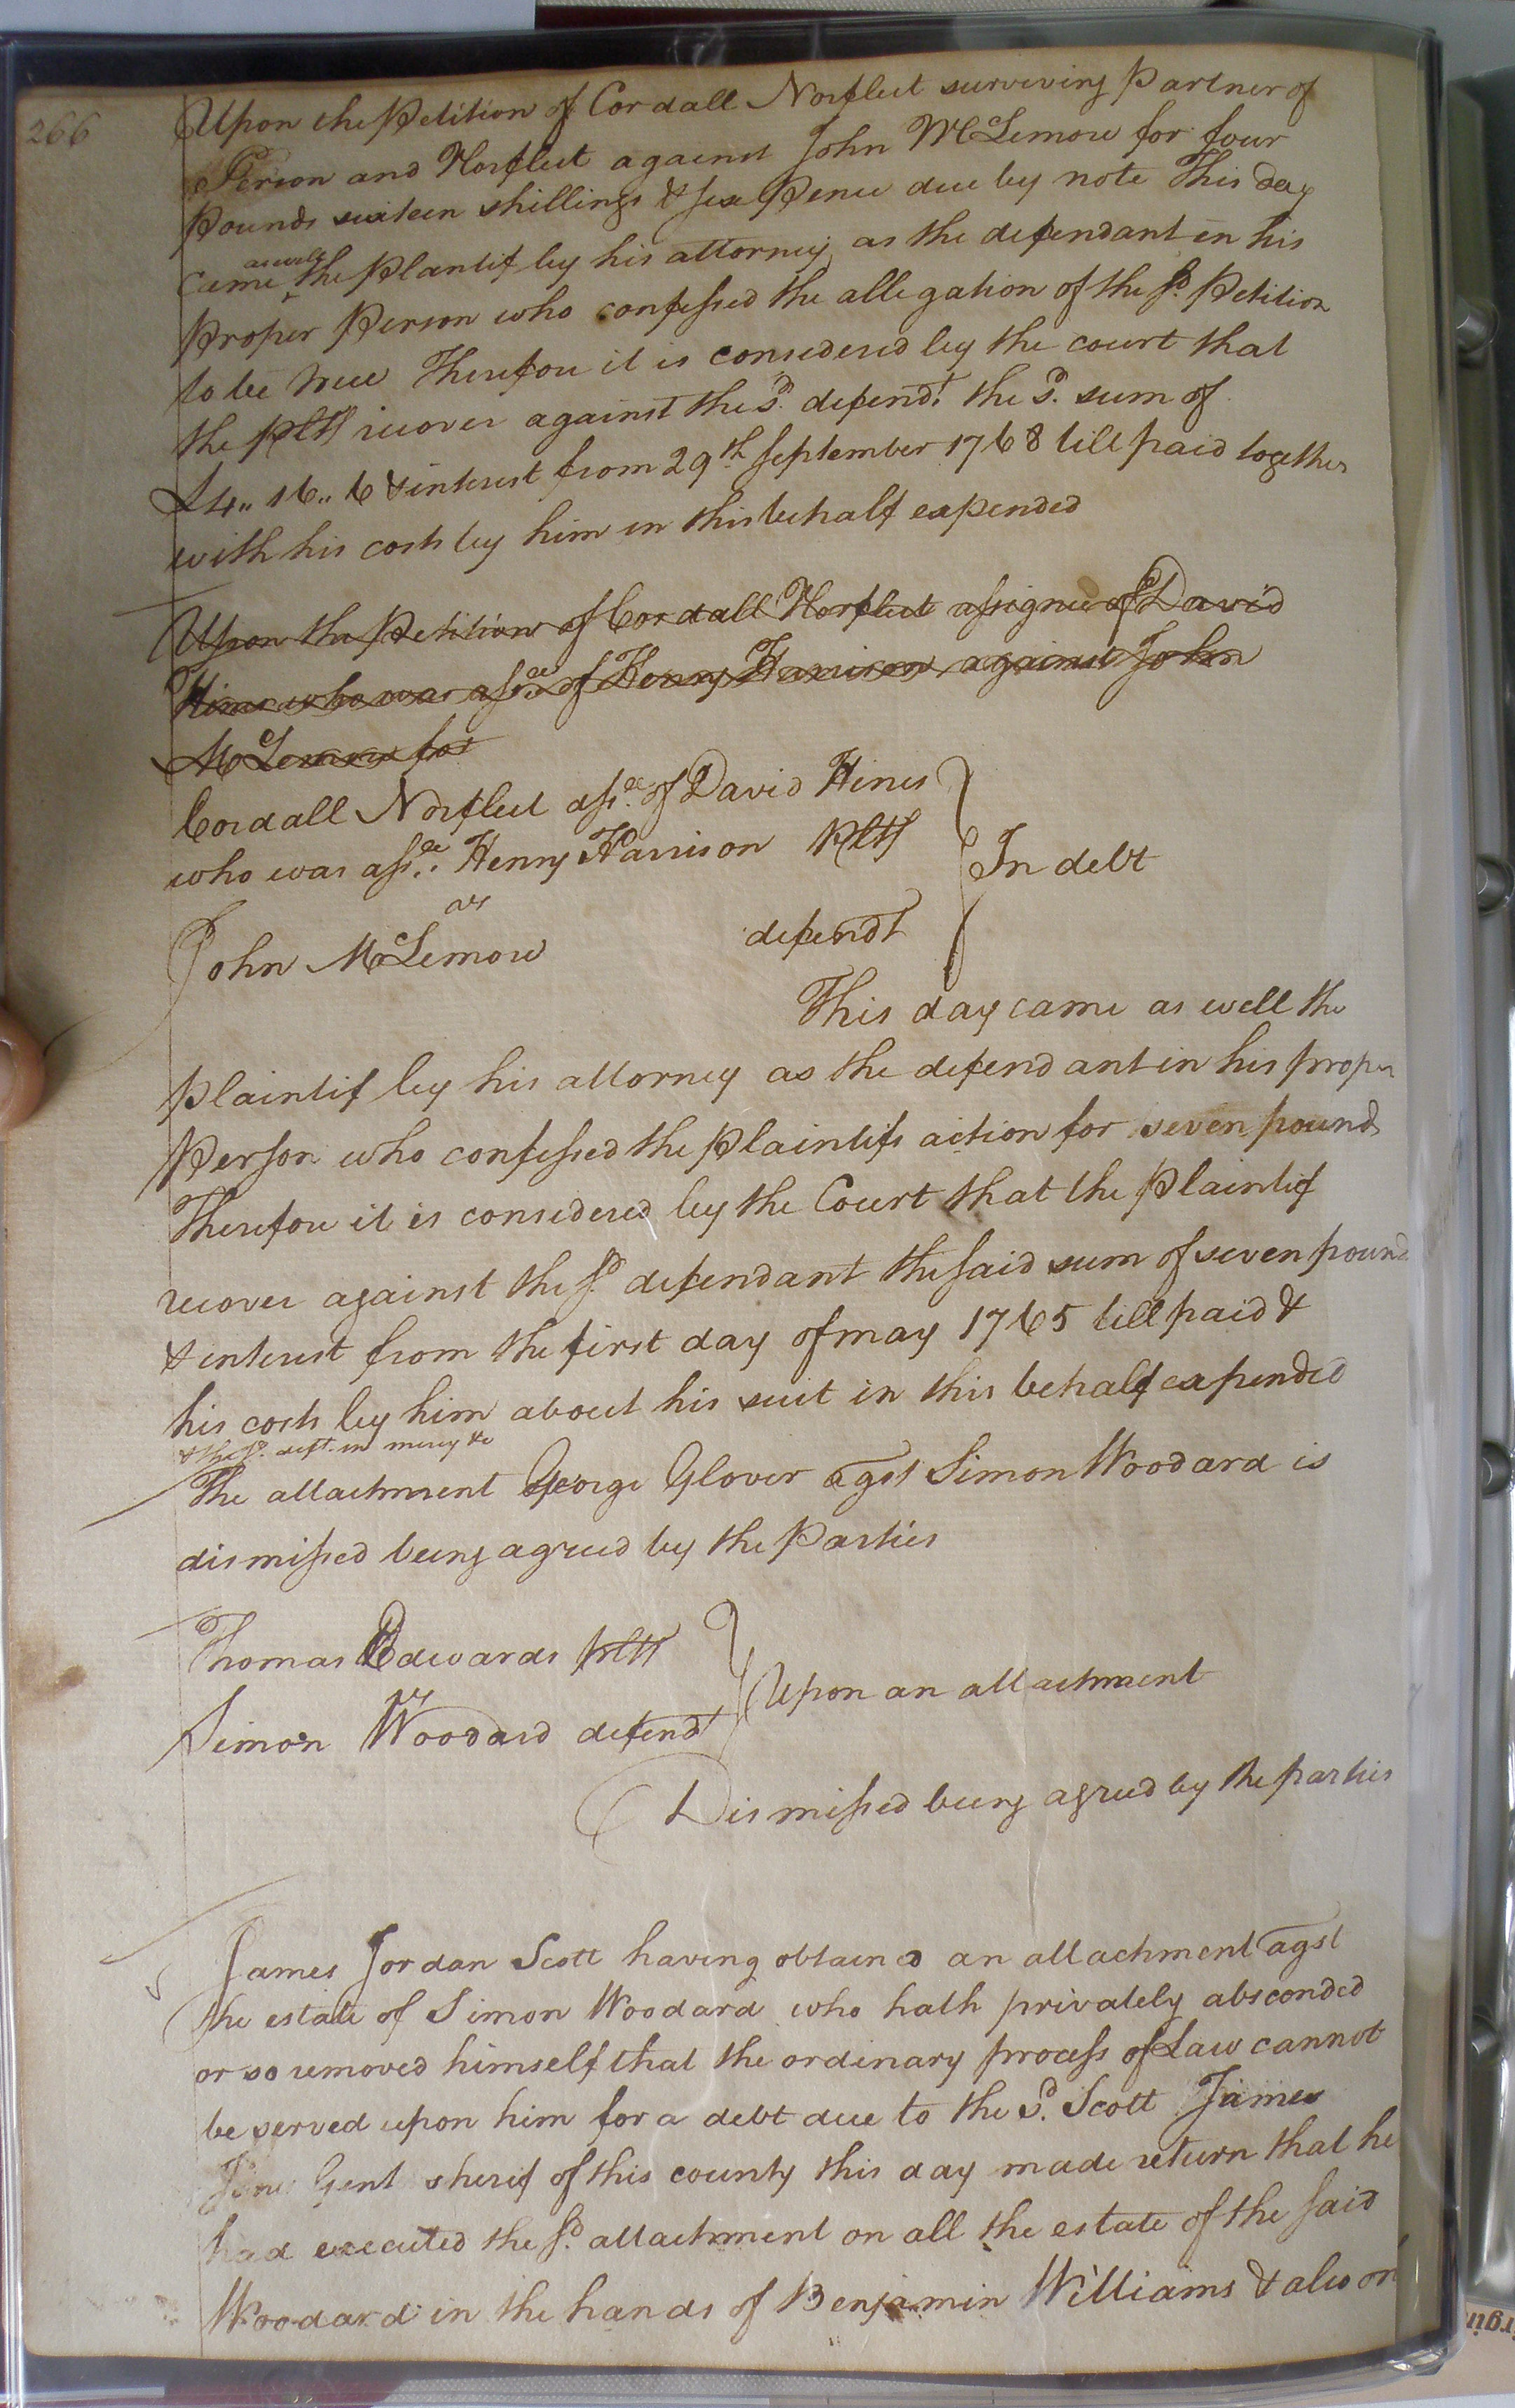 266
Upon the Petition of Cordall Norfleet surviving Partner of
Person and Norfleet against John McLemore for four
Pounds sixteen shillings & six Pence due by note This day
as well
came the Plantif by his attorney, as the defendant in his
proper Person who confessed the allegation of the sd. Petition
to be true Therefore it is considered by the court that
the Pltf recover against the sd. defendt. the sd. sum of
£4,, 16,, 6 & interest from 29th September 1768 till paid together
with his costs by him in this behalf expended
Upon the Petition of Cordall Norfleet assignee of David
Hines who was assee. of Henry Harrison against John
McLemore for
Cordall Norfleet assee. of David Hines
who was assee. Henry Harrison Pltf
In debt
avs
John McLemore defendt
This day came as well the
plaintif by his attorney as the defendant in his proper
Person who confessed the plaintifs action for seven pounds
Therefore it is considered by the Court that the Plaintif
recover against the sd. defendant the said sum of seven pound
& interest from the first day of may 1765 till paid &
his costs by him about his suit in this behalf expended
& the sd. deft. in mercy &c
The attachment George Glover agst Simon Woodard is
dismissed being agreed by the Parties
Thomas Edwards Pltf
Upon an attachment
Simon Woodard defendt
Dismissed being agreed by the parties
James Jordan Scott having obtained an attachment agst
the estate of Simon Woodard who hath privately absconded
or so removed himself that the ordinary process of Law cannot
be served upon him for a debt due to the sd. Scott James
Gent sherif of this county this day made return that he
had executed the sd. attachment on all the estate of the said
Woodard in the hands of Benjamin Williams & also on